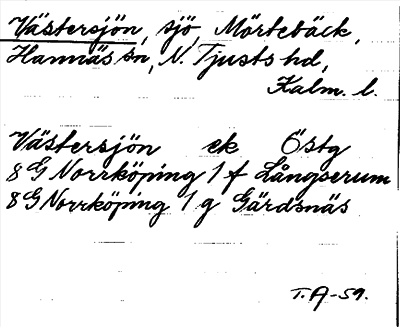 Västersjön, sjö, Mörtebäck,
Hannäs sn, N. Tjusts hd,
Kalm. l.
Västersjön ek Östg
8G Norrköping 1 f Långserum
8G Norrköping 1 g Gärdsnäs
T.A-59.